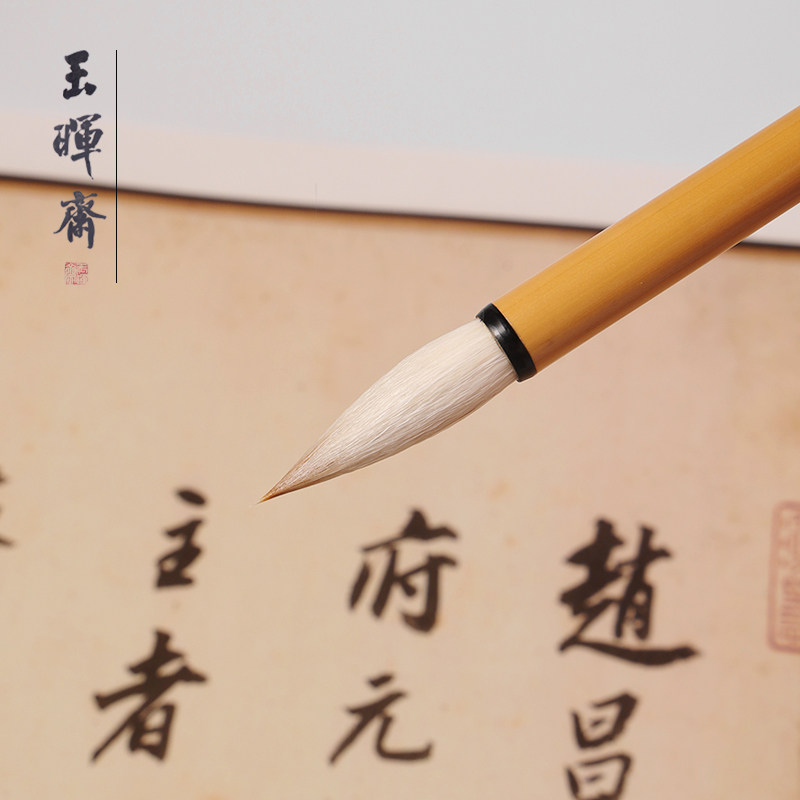 玉暉齋
趙昌
府元
主者